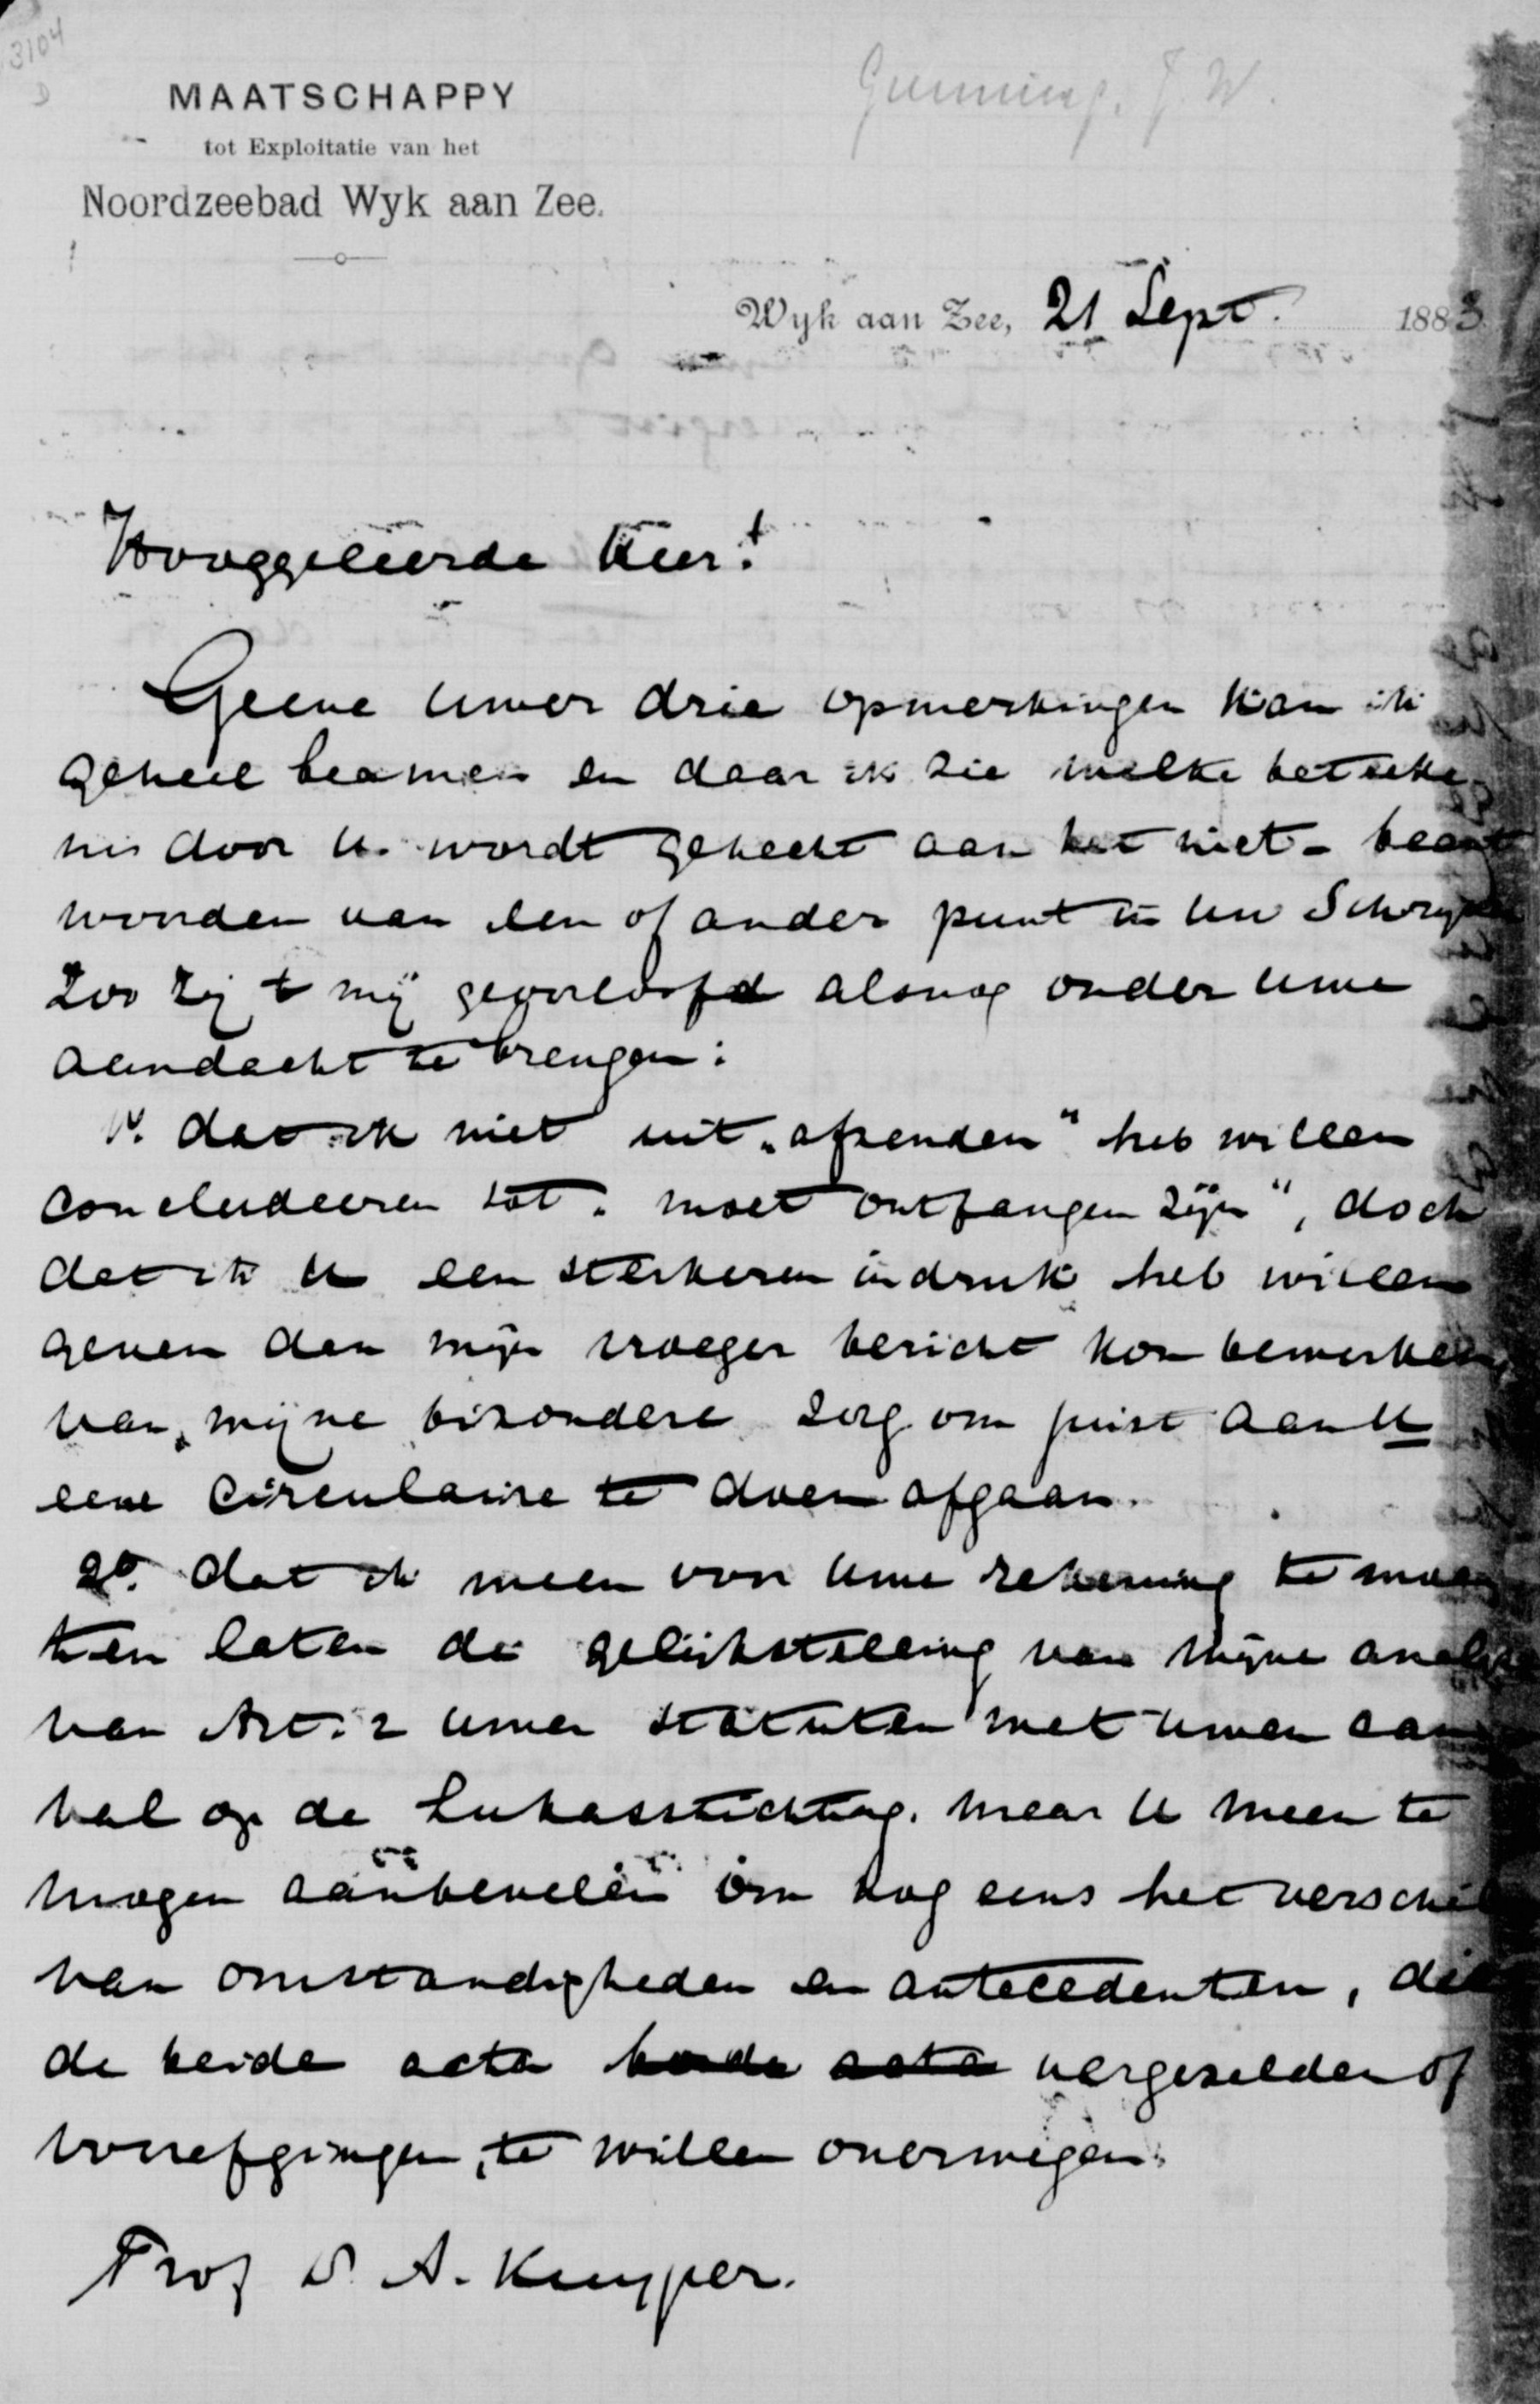 3104
MAATSCHAPPY
tot Exploitatie van het
Noordzeebad Wyk aan Zee.
Gunning, J. W.
Wyk aan Zee, 21 Sept. 1883
Hooggeleerde Heer!
Geene uwer drie opmerkingen kan ik
geheel beamen en daar ik zie welke beteeke
nis door U. wordt gehecht aan het niet-beant
woorden van een of ander punt in uw Schryven
Zoo zij 't mij geoorloofd alsnog onder uwe
aandacht te brengen:
1º. dat ik niet uit „afzenden" heb willen
concludeeren tot „moet ontfangen zijn", doch
dat ik U een sterkeren indruk heb willen
geven dan mijn vroeger bericht kon bewerken
van mijne bizondere zorg om juist aan U
eene circulaire te doen afgaan.
2º. dat ik meen voor uwe rekening te moe
ten laten de gelijkstelling van mijne analyse
van Art. 2 uwer statuten met uwen aan
val op de Lukasstichting, maar U meen te
mogen aanbevelen om nog eens het verschil
van omstandigheden en antecedenten, die
de beide acta beide acta vergezelden of
voorafgingen, te willen overwegen.
Prof Dr. A. Kuyper.